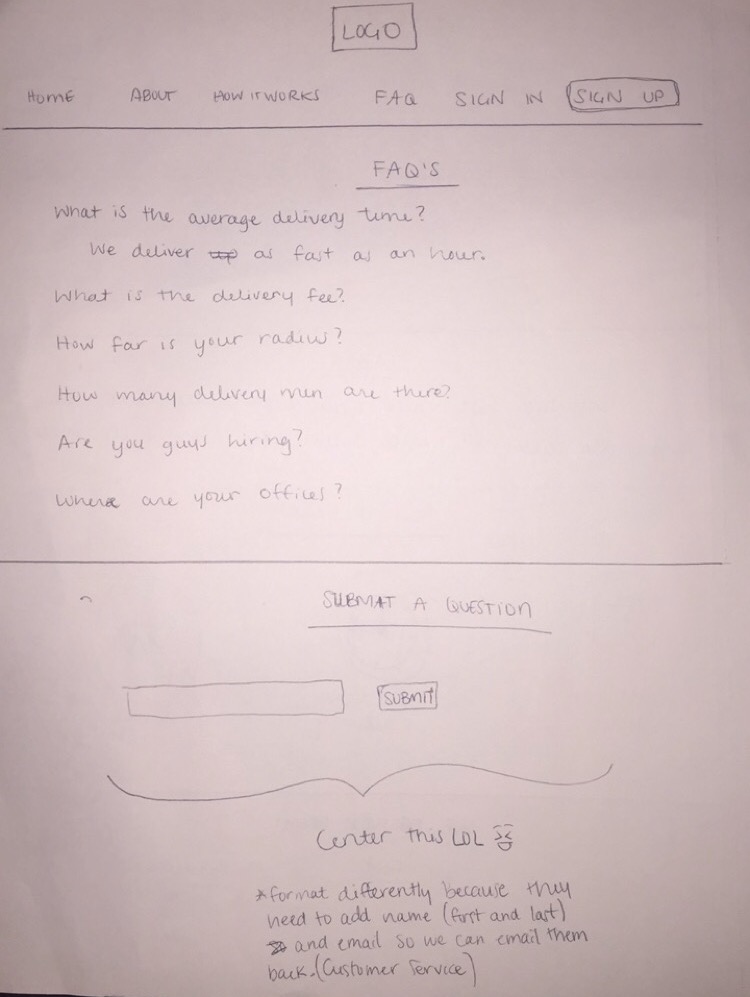 LOGO
Home ABOUT HOW IT WORKS FAQ SIGN IN SIGN UP
FAQ'S
What is the average delivery time?
We deliver as fast as an hour.
What is the delivery fee?
How far is your radius?
How many delivery men are there?
Are you guys hiring?
Where are your offices?
SUBMAT A QUESTION
SUBMIT
Center this LOL
*format differently because they
need to add name (first and last)
and email so we can email them
back. (Customer Service)